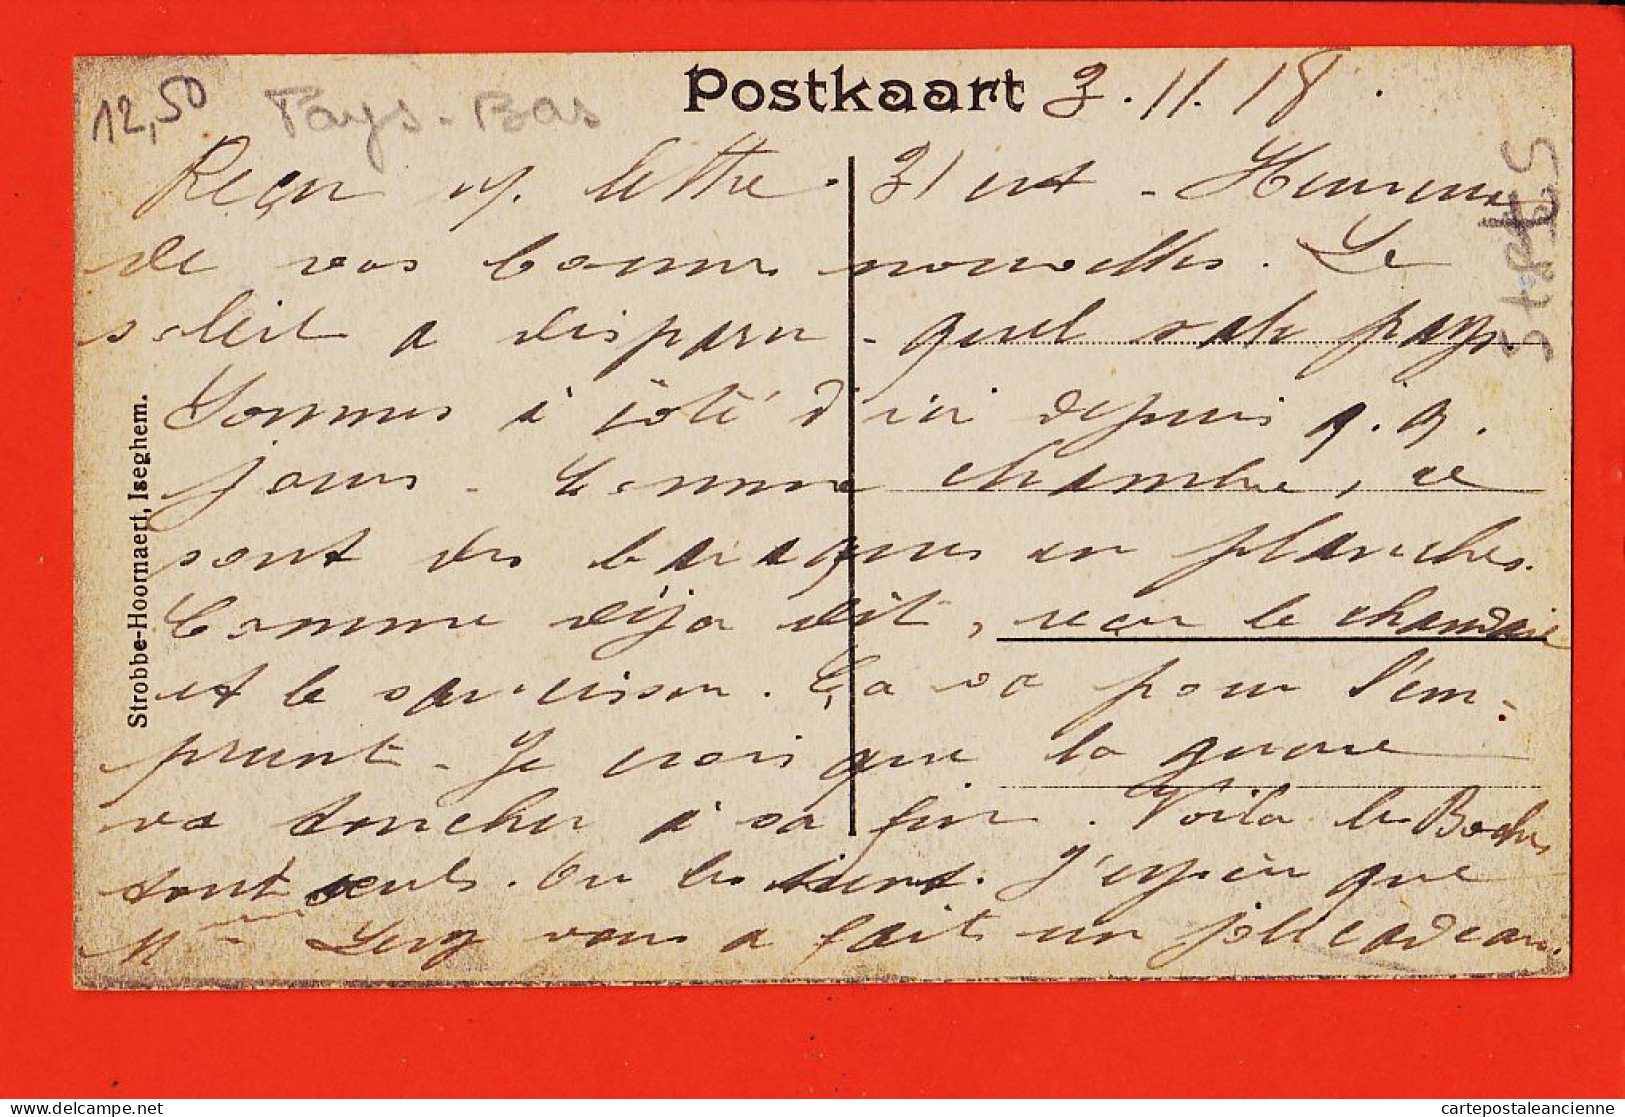 12,50
Pays-Bas
Postkaart 3.11.18.
Reçu v/. lettre. 31 crt - Heureux
de vos bonnes nouvelles. Le
soleil a disparu - quel sale pays.
Sommes à côté d'ici depuis q.q.
jours - Comme chambre, ce
sont des baraques en planches.
Comme déja dit, reçu le chandail
et le saucisson. Ça va pour l'em-
prunt - Je crois que la guerre
va toucher à sa fin. Voila les Boches
sont seuls. On les tient. J'espère que
Mme vous a fait un joli cadeau.
Strobbe-Hoornaert, Iseghem.
cartepostaleancienne
delcampe.net